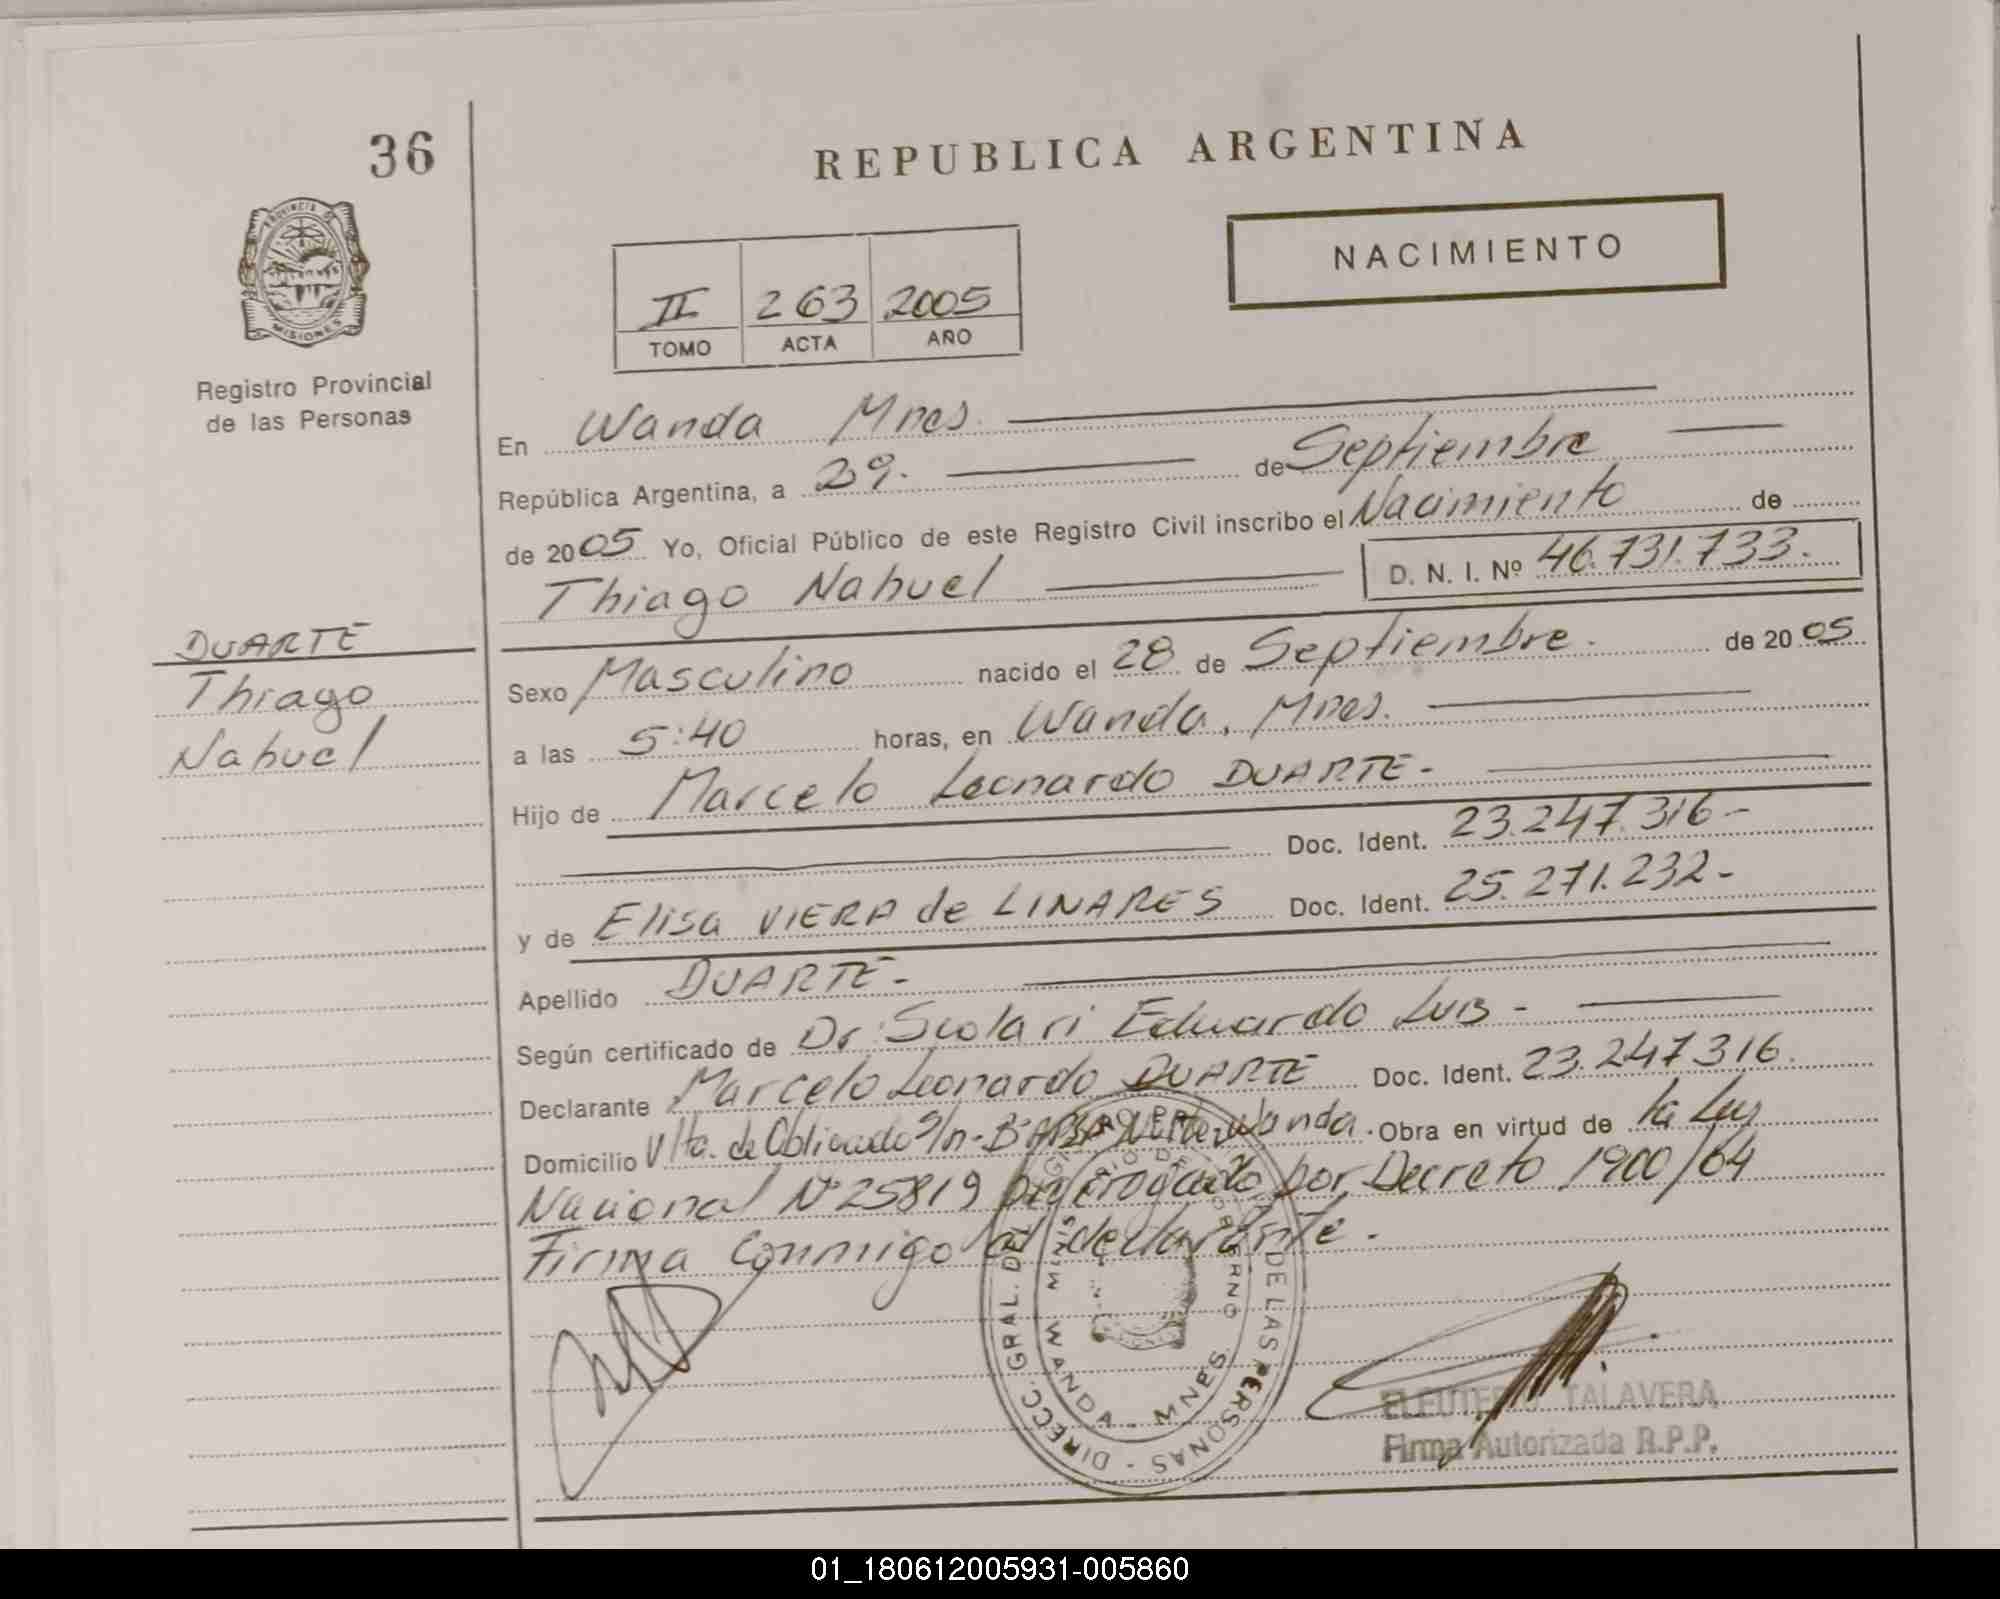 36
REPUBLICA ARGENTINA
NACIMIENTO
PROVINCIA DE
MISIONES
Registro Provincial
de las Personas
II 263 2005
TOMO ACTA AÑO
En Wanda Mnes.
República Argentina, a 29. de Septiembre
de 2005 Yo, Oficial Público de este Registro Civil inscribo el Nacimiento de
Thiago Nahuel D. N. I. Nº 46.731.733.
DUARTE
Thiago
Nahuel
Sexo Masculino nacido el 28 de Septiembre. de 2005
a las 5:40 horas, en Wanda, Mnes.
Hijo de Marcelo Leonardo DUARTE-
Doc. Ident. 23.247.316-
y de Elisa VIERA de LINARES Doc. Ident. 25.271.232-
Apellido DUARTE-
Según certificado de Dr. Scolari Eduardo Luis-
Declarante Marcelo Leonardo DUARTE Doc. Ident. 23.247316.
Domicilio Vlta. de Obligado S/n- Wanda. Obra en virtud de la Ley
Nacional Nº 25819 por Decreto 1900/04
Firma conmigo el declarante.
DIRECC. GRAL. DEL DE LAS PERSONAS
WANDA - MNES
ELEUTERIO TALAVERA
Firma Autorizada R.P.P.
01_180612005931-005860